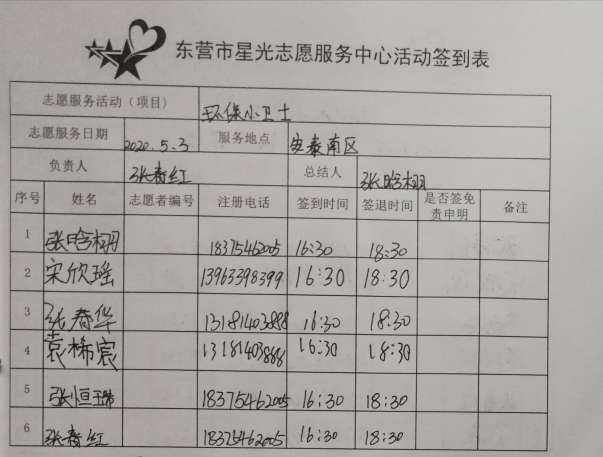 东营市星光志愿服务中心活动签到表
志愿服务活动（项目） 环保小卫士
志愿服务日期 2020.5.3 服务地点 安泰南区
负责人 张春红 总结人 张晗栩
序号 姓名 志愿者编号 注册电话 签到时间 签退时间 是否签免责申明 备注
1 张晗栩 18375462005 16:30 18:30
2 宋欣瑶 13963398399 16:30 18:30
3 张春华 13181403888 16:30 18:30
4 袁梓宸 13181403888 16:30 18:30
5 张恒 18375462005 16:30 18:30
6 张春红 18375462005 16:30 18:30